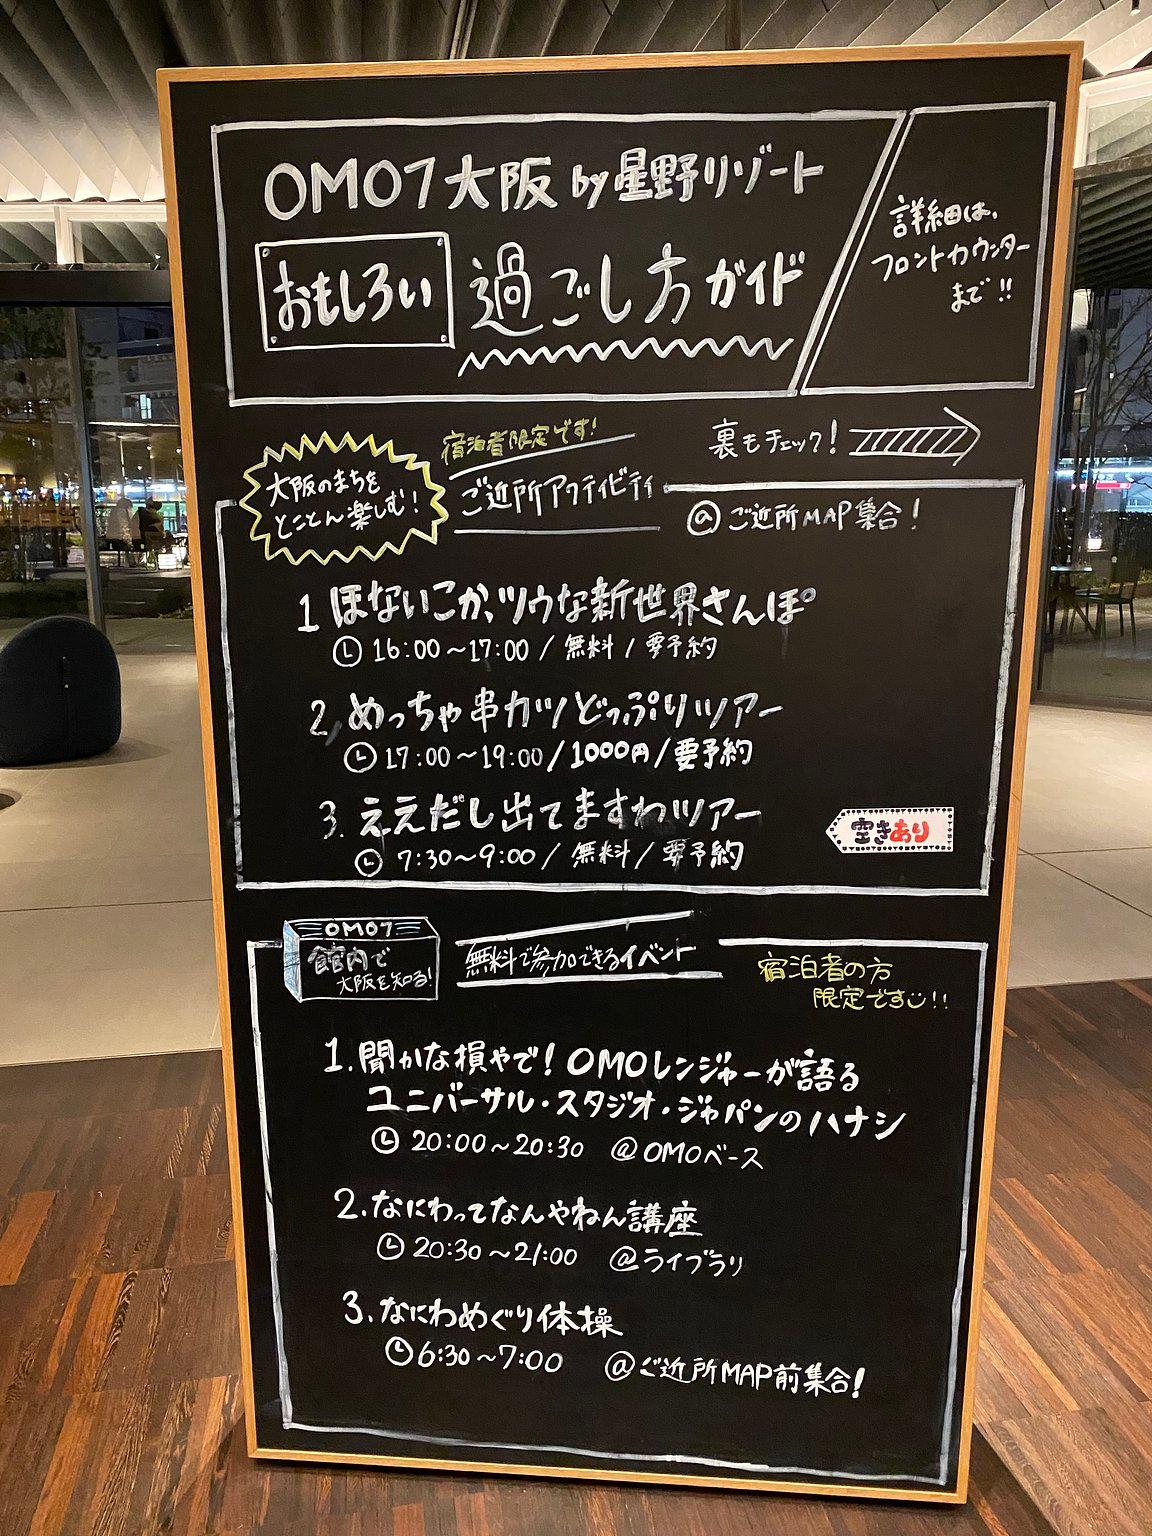 OMO7大阪 by 星野リゾート
おもしろい 過ごし方ガイド
詳細は、
フロントカウンター
まで!!
大阪のまちを
とことん楽しむ!
宿泊者限定です!
ご近所アクティビティ
裏もチェック!
@ご近所MAP集合!
1 ほないこか、ツウな新世界さんぽ
16:00～17:00 / 無料 / 要予約
2, めっちゃ串カツどっぷりツアー
17:00～19:00/1000円/要予約
3. ええだし出てますわツアー
7:30～9:00/ 無料/ 要予約
空きあり
OMO7
館内で
大阪を知る!
無料で参加できるイベント
宿泊者の方
限定です!!
1. 聞かな損やで! OMOレンジャーが語る
ユニバーサル・スタジオ・ジャパンのハナシ
20:00～20:30 @OMOベース
2. なにわってなんやねん講座
20:30～21:00 @ライブラリ
3. なにわめぐり体操
6:30～7:00 @ご近所MAP前集合!